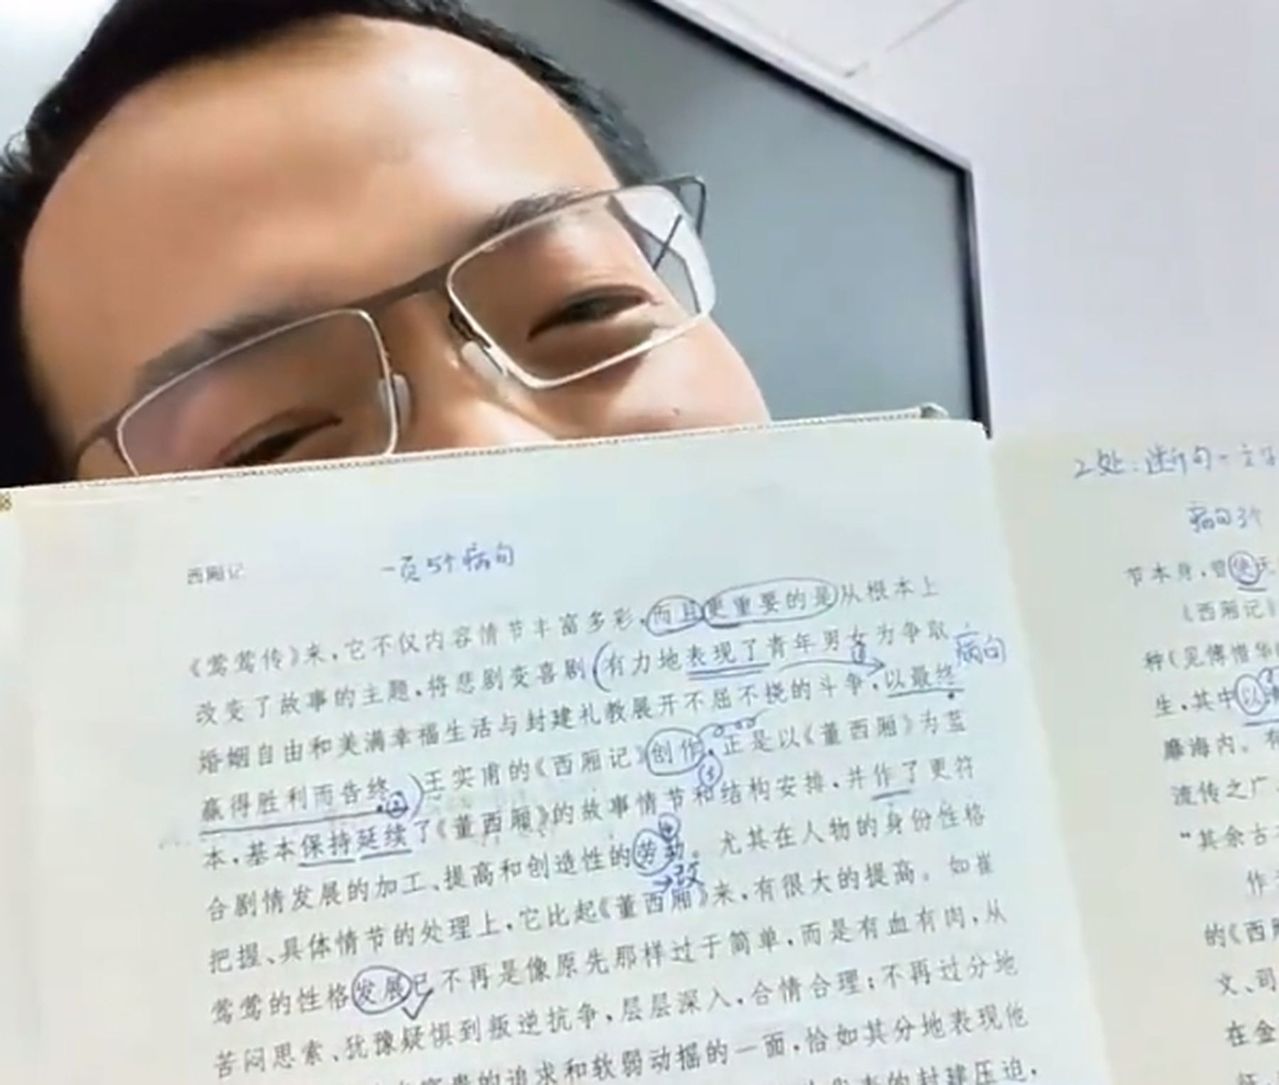 西厢记
一页5个病句
《莺莺传》来，它不仅内容情节丰富多彩，而且更重要的是从根本上
改变了故事的主题，将悲剧变喜剧（有力地表现了青年男女为争取
病句
婚姻自由和美满幸福生活与封建礼教展开不屈不挠的斗争，以最终
赢得胜利而告终。）王实甫的《西厢记》创作，正是以《董西厢》为蓝
本，基本保持延续了《董西厢》的故事情节和结构安排，并作了更符
合剧情发展的加工、提高和创造性的劳动。尤其在人物的身份性格
→改
把握、具体情节的处理上，它比起《董西厢》来，有很大的提高。如崔
莺莺的性格发展已不再是像原先那样过于简单，而是有血有肉，从
苦闷思索、犹豫疑惧到叛逆抗争，层层深入，合情合理；不再过分地
的追求和软弱动摇的一面，恰如其分地表现他
的封建压迫，
2处：
病句3个
节本身，曾使
《西厢记》
种（见傅惜华
生，其中以
靡海内。有
流传之广
“其余古
作
的《西厢
文、司
在金